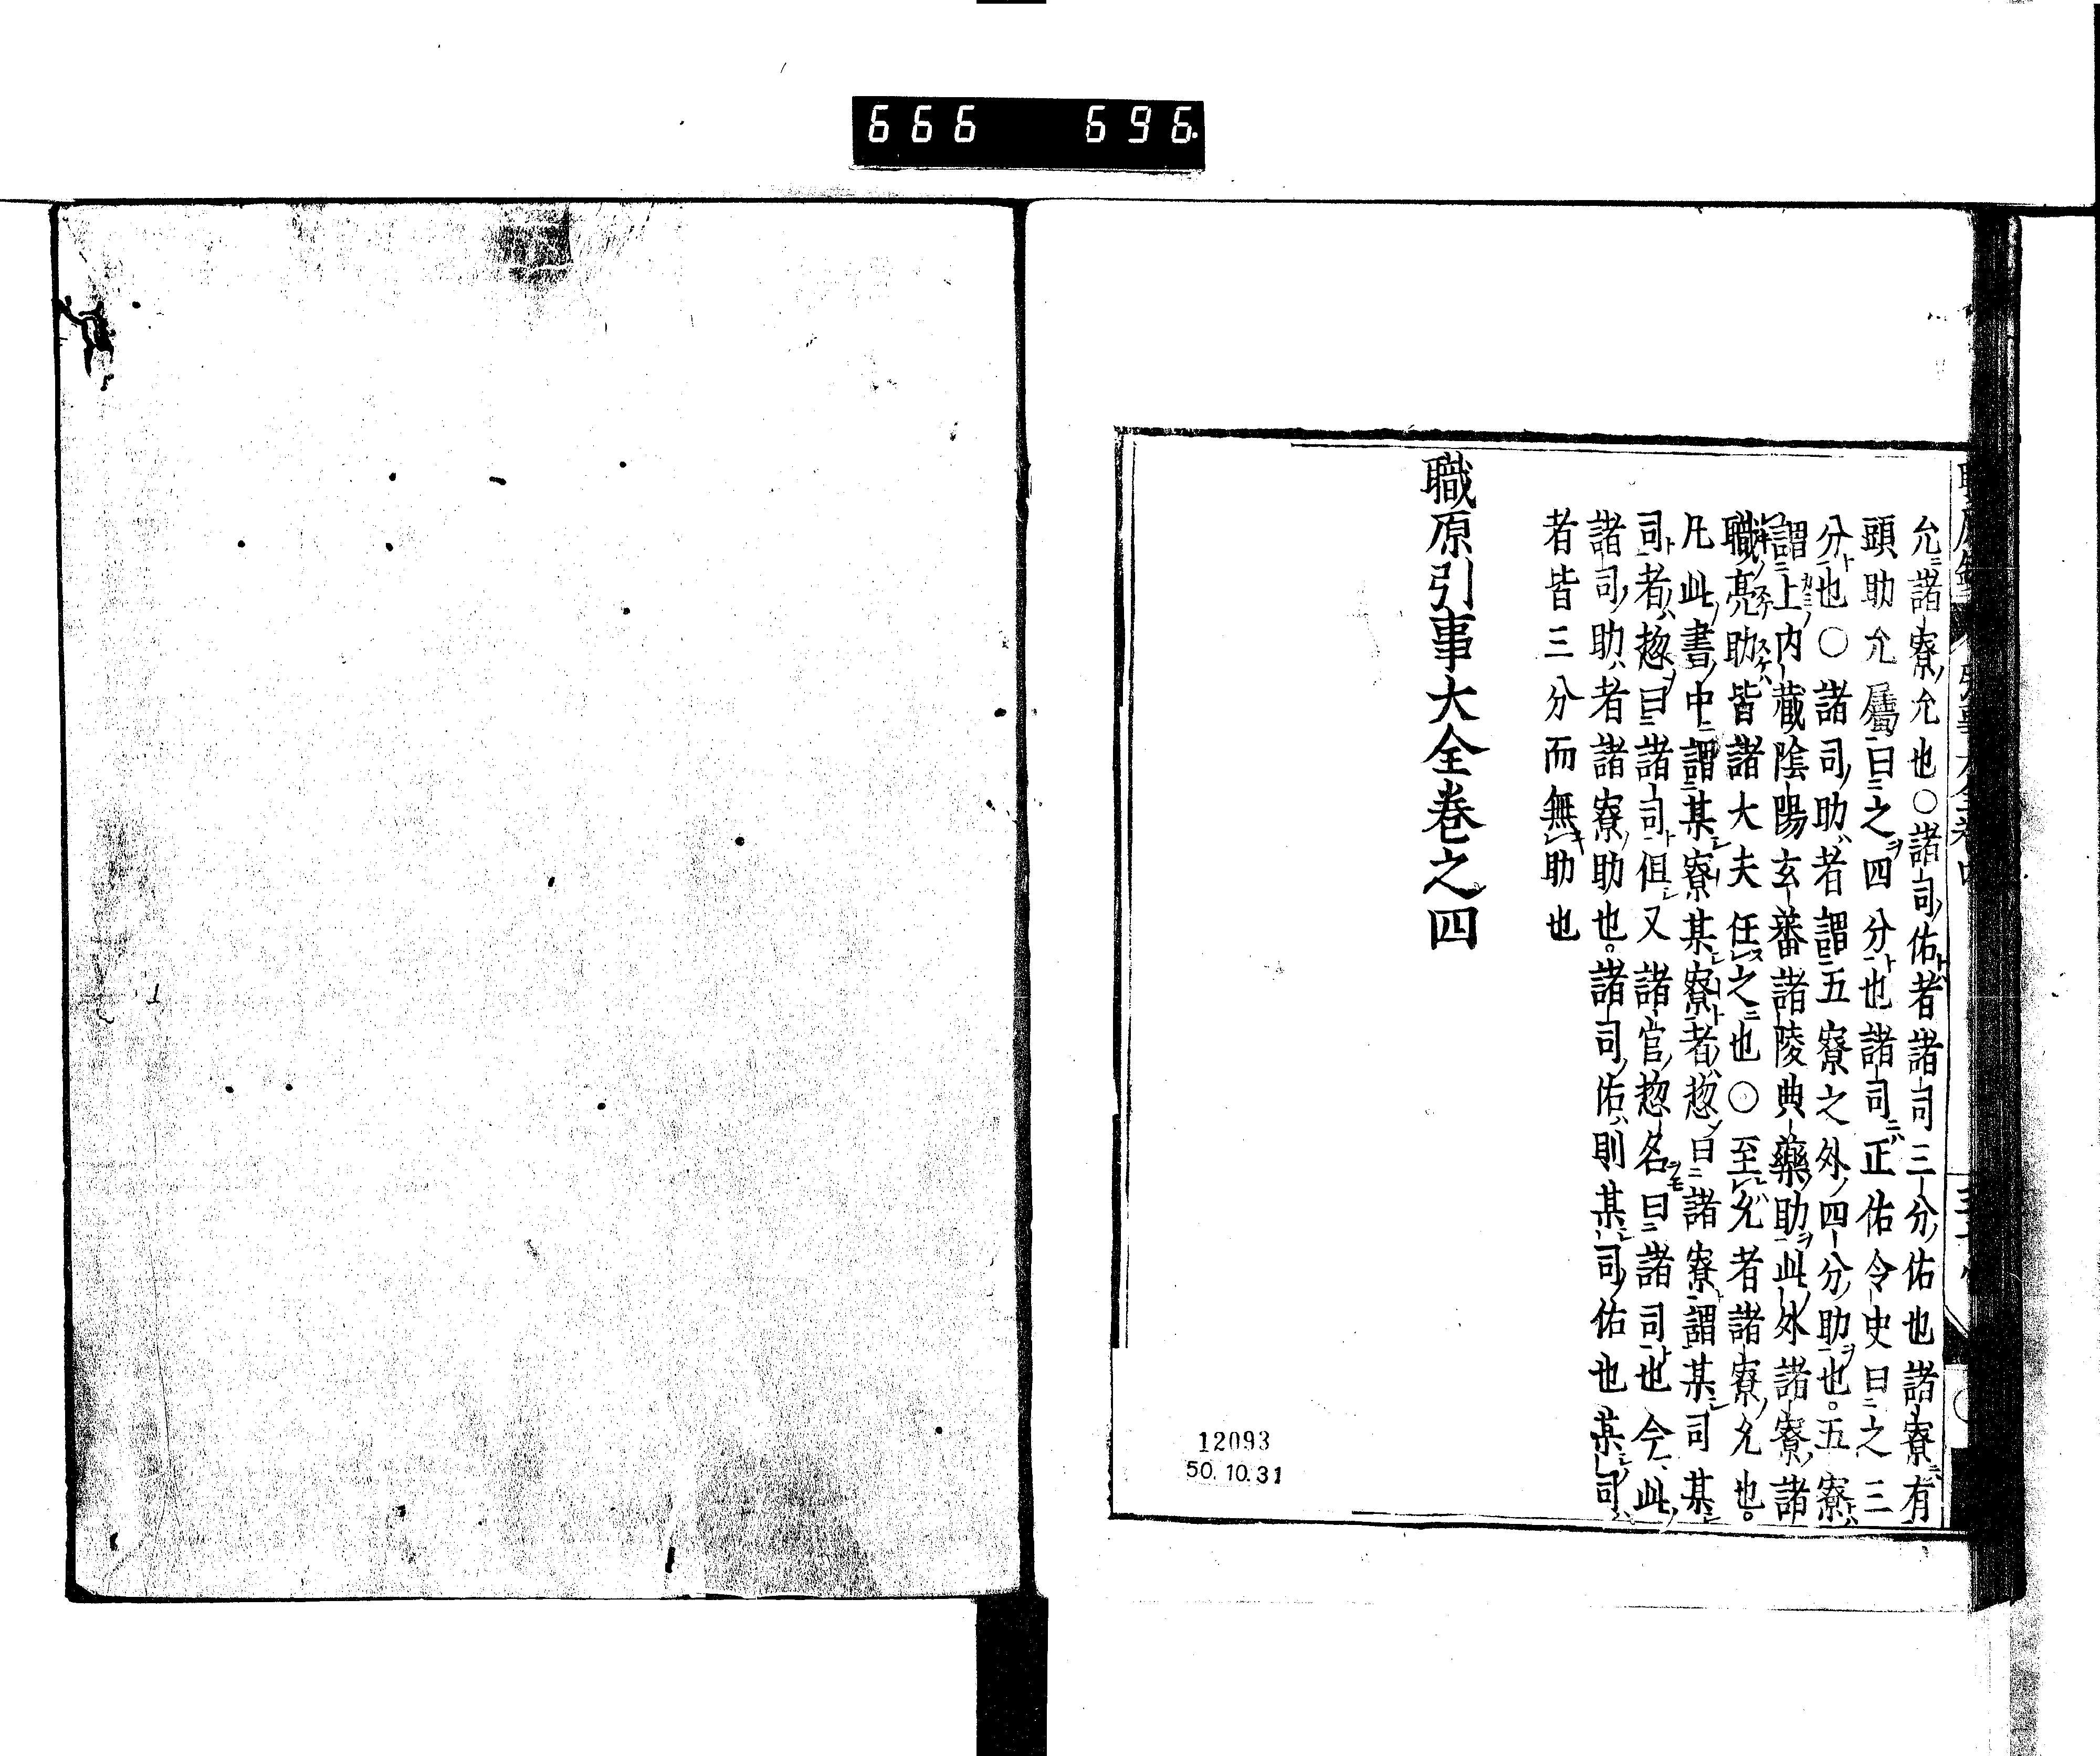 666 696.
允諸寮允也○諸司佑者諸司三分佑也諸寮有
頭助允屬曰之四分也諸司正佑令史曰之三
分也○諸司助者謂五寮之外四分助也。五寮
謂上内藏陰陽玄蕃諸陵典藥助此外諸寮諸
職亮助皆諸大夫任之也○至允者諸寮允也。
凡此書中謂某寮某寮者惣曰諸寮謂某司某
司者惣曰諸司但又諸官惣名曰諸司也今此
諸司助者諸寮助也。諸司佑則某司佑也某司
者皆三分而無助也
職原引事大全卷之四
12093
50.10.31